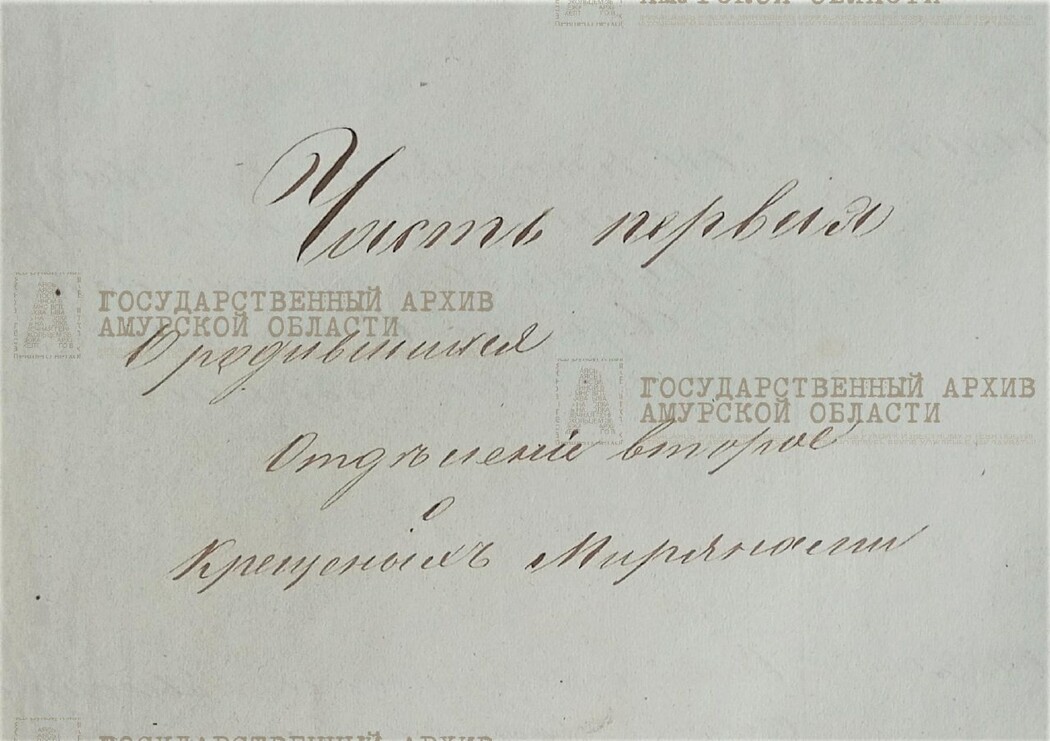 АМУРСКОЙ ОБЛАСТИ
Часть первая
ГОСУДАРСТВЕННЫЙ АРХИВ
АМУРСКОЙ ОБЛАСТИ
О родившихся
ГОСУДАРСТВЕННЫЙ АРХИВ
АМУРСКОЙ ОБЛАСТИ
Отдѣленіе второе
о
Крещеныхъ Мирянами
ГОСУДАРСТВЕННЫЙ АРХИВ